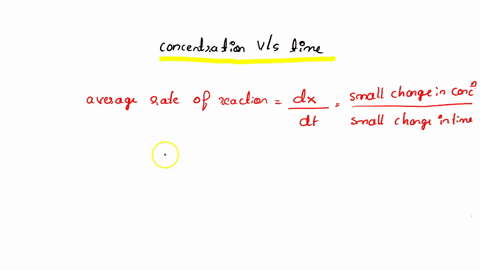 concentration v/s time
average rate of reaction = dx/dt = small change in concⁿ/small change in time